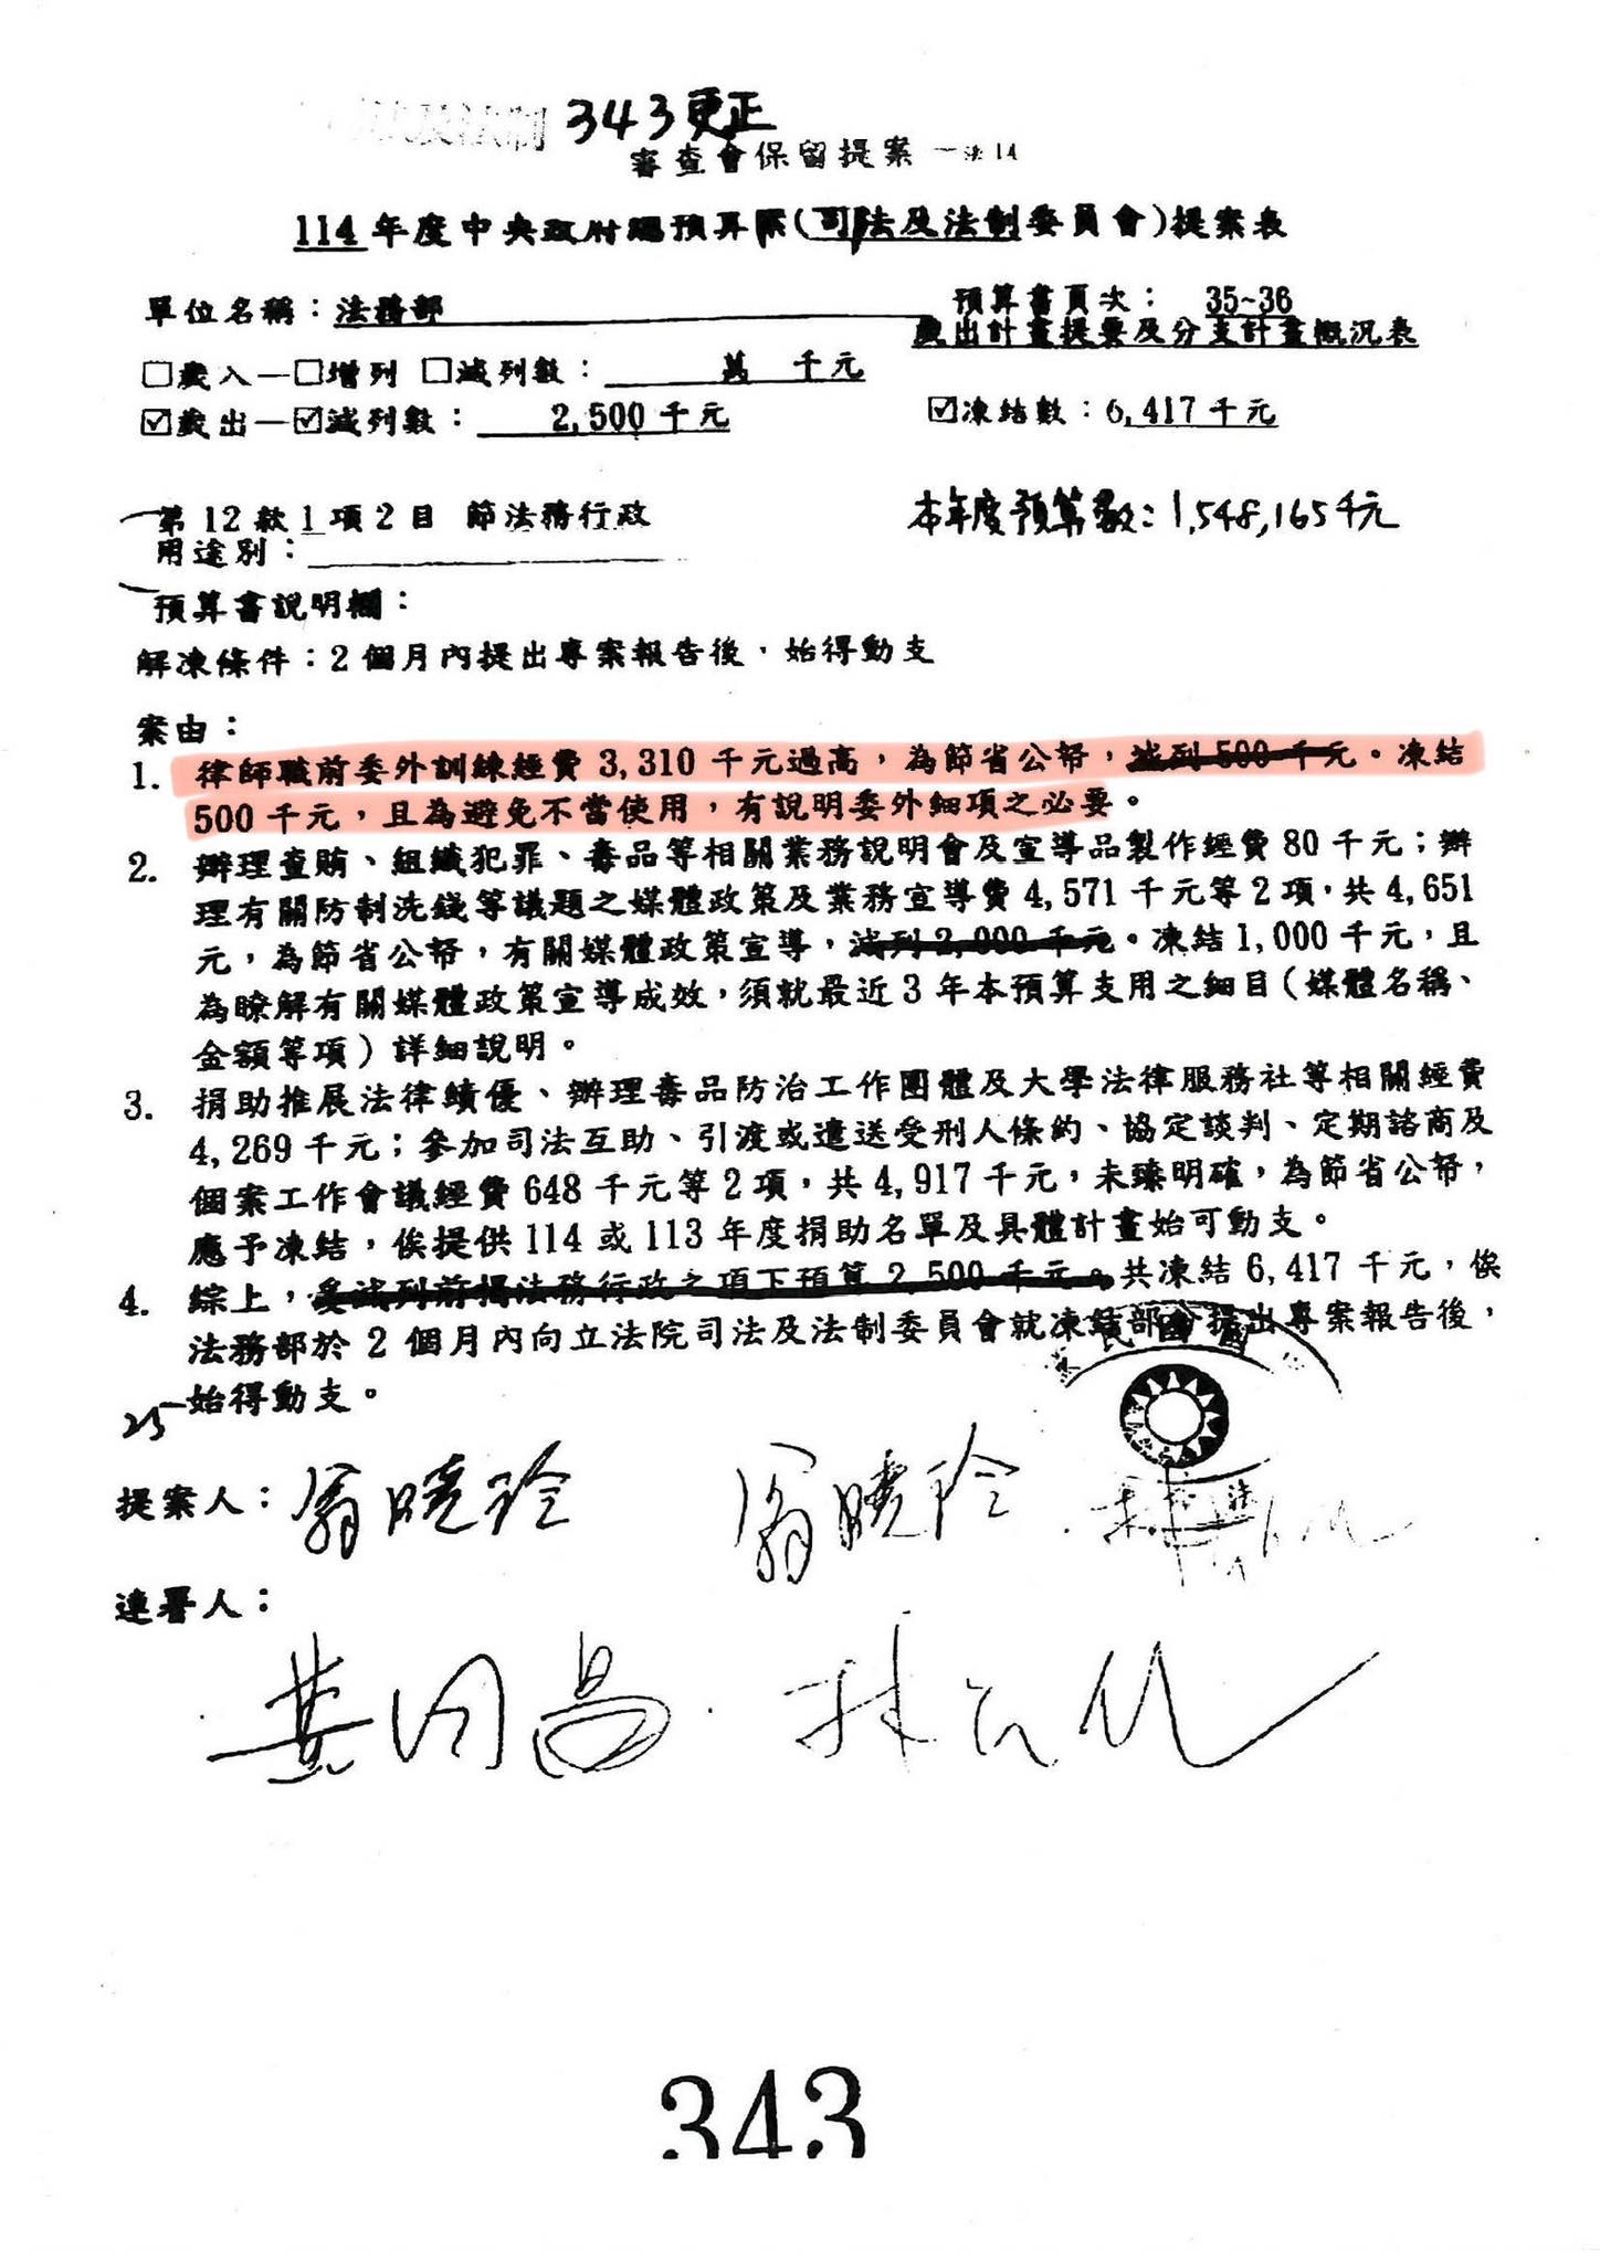 343更正
審查會保留提案一法14
114年度中央政府總預算案(司法及法制委員會)提案表
單位名稱：法務部
預算書頁次： 35~36
歲出計畫提要及分支計畫概況表
□歲入—□增列 □減列數： 萬 千元
☑歲出—☑減列數： 2,500千元
☑凍結數：6,417千元
第12款1項2目 節法務行政
本年度預算數：1,548,165千元
用途別：
預算書說明欄：
解凍條件：2個月內提出專案報告後，始得動支
案由：
1. 律師職前委外訓練經費3,310千元過高，為節省公帑，減列500千元。凍結
500千元，且為避免不當使用，有說明委外細項之必要。
2. 辦理查賄、組織犯罪、毒品等相關業務說明會及宣導品製作經費80千元；辦
理有關防制洗錢等議題之媒體政策及業務宣導費4,571千元等2項，共4,651
元，為節省公帑，有關媒體政策宣導，減列2,000千元。凍結1,000千元，且
為瞭解有關媒體政策宣導成效，須就最近3年本預算支用之細目(媒體名稱、
金額等項)詳細說明。
3. 捐助推展法律績優、辦理毒品防治工作團體及大學法律服務社等相關經費
4,269千元；參加司法互助、引渡或遣送受刑人條約、協定談判、定期諮商及
個案工作會議經費648千元等2項，共4,917千元，未臻明確，為節省公帑，
應予凍結，俟提供114或113年度捐助名單及具體計畫始可動支。
4. 綜上，減列前揭法務行政之項下預算2,500千元。共凍結6,417千元，俟
法務部於2個月內向立法院司法及法制委員會就凍結部分提出專案報告後，
始得動支。
25
提案人：翁曉玲 翁曉玲
連署人：
343